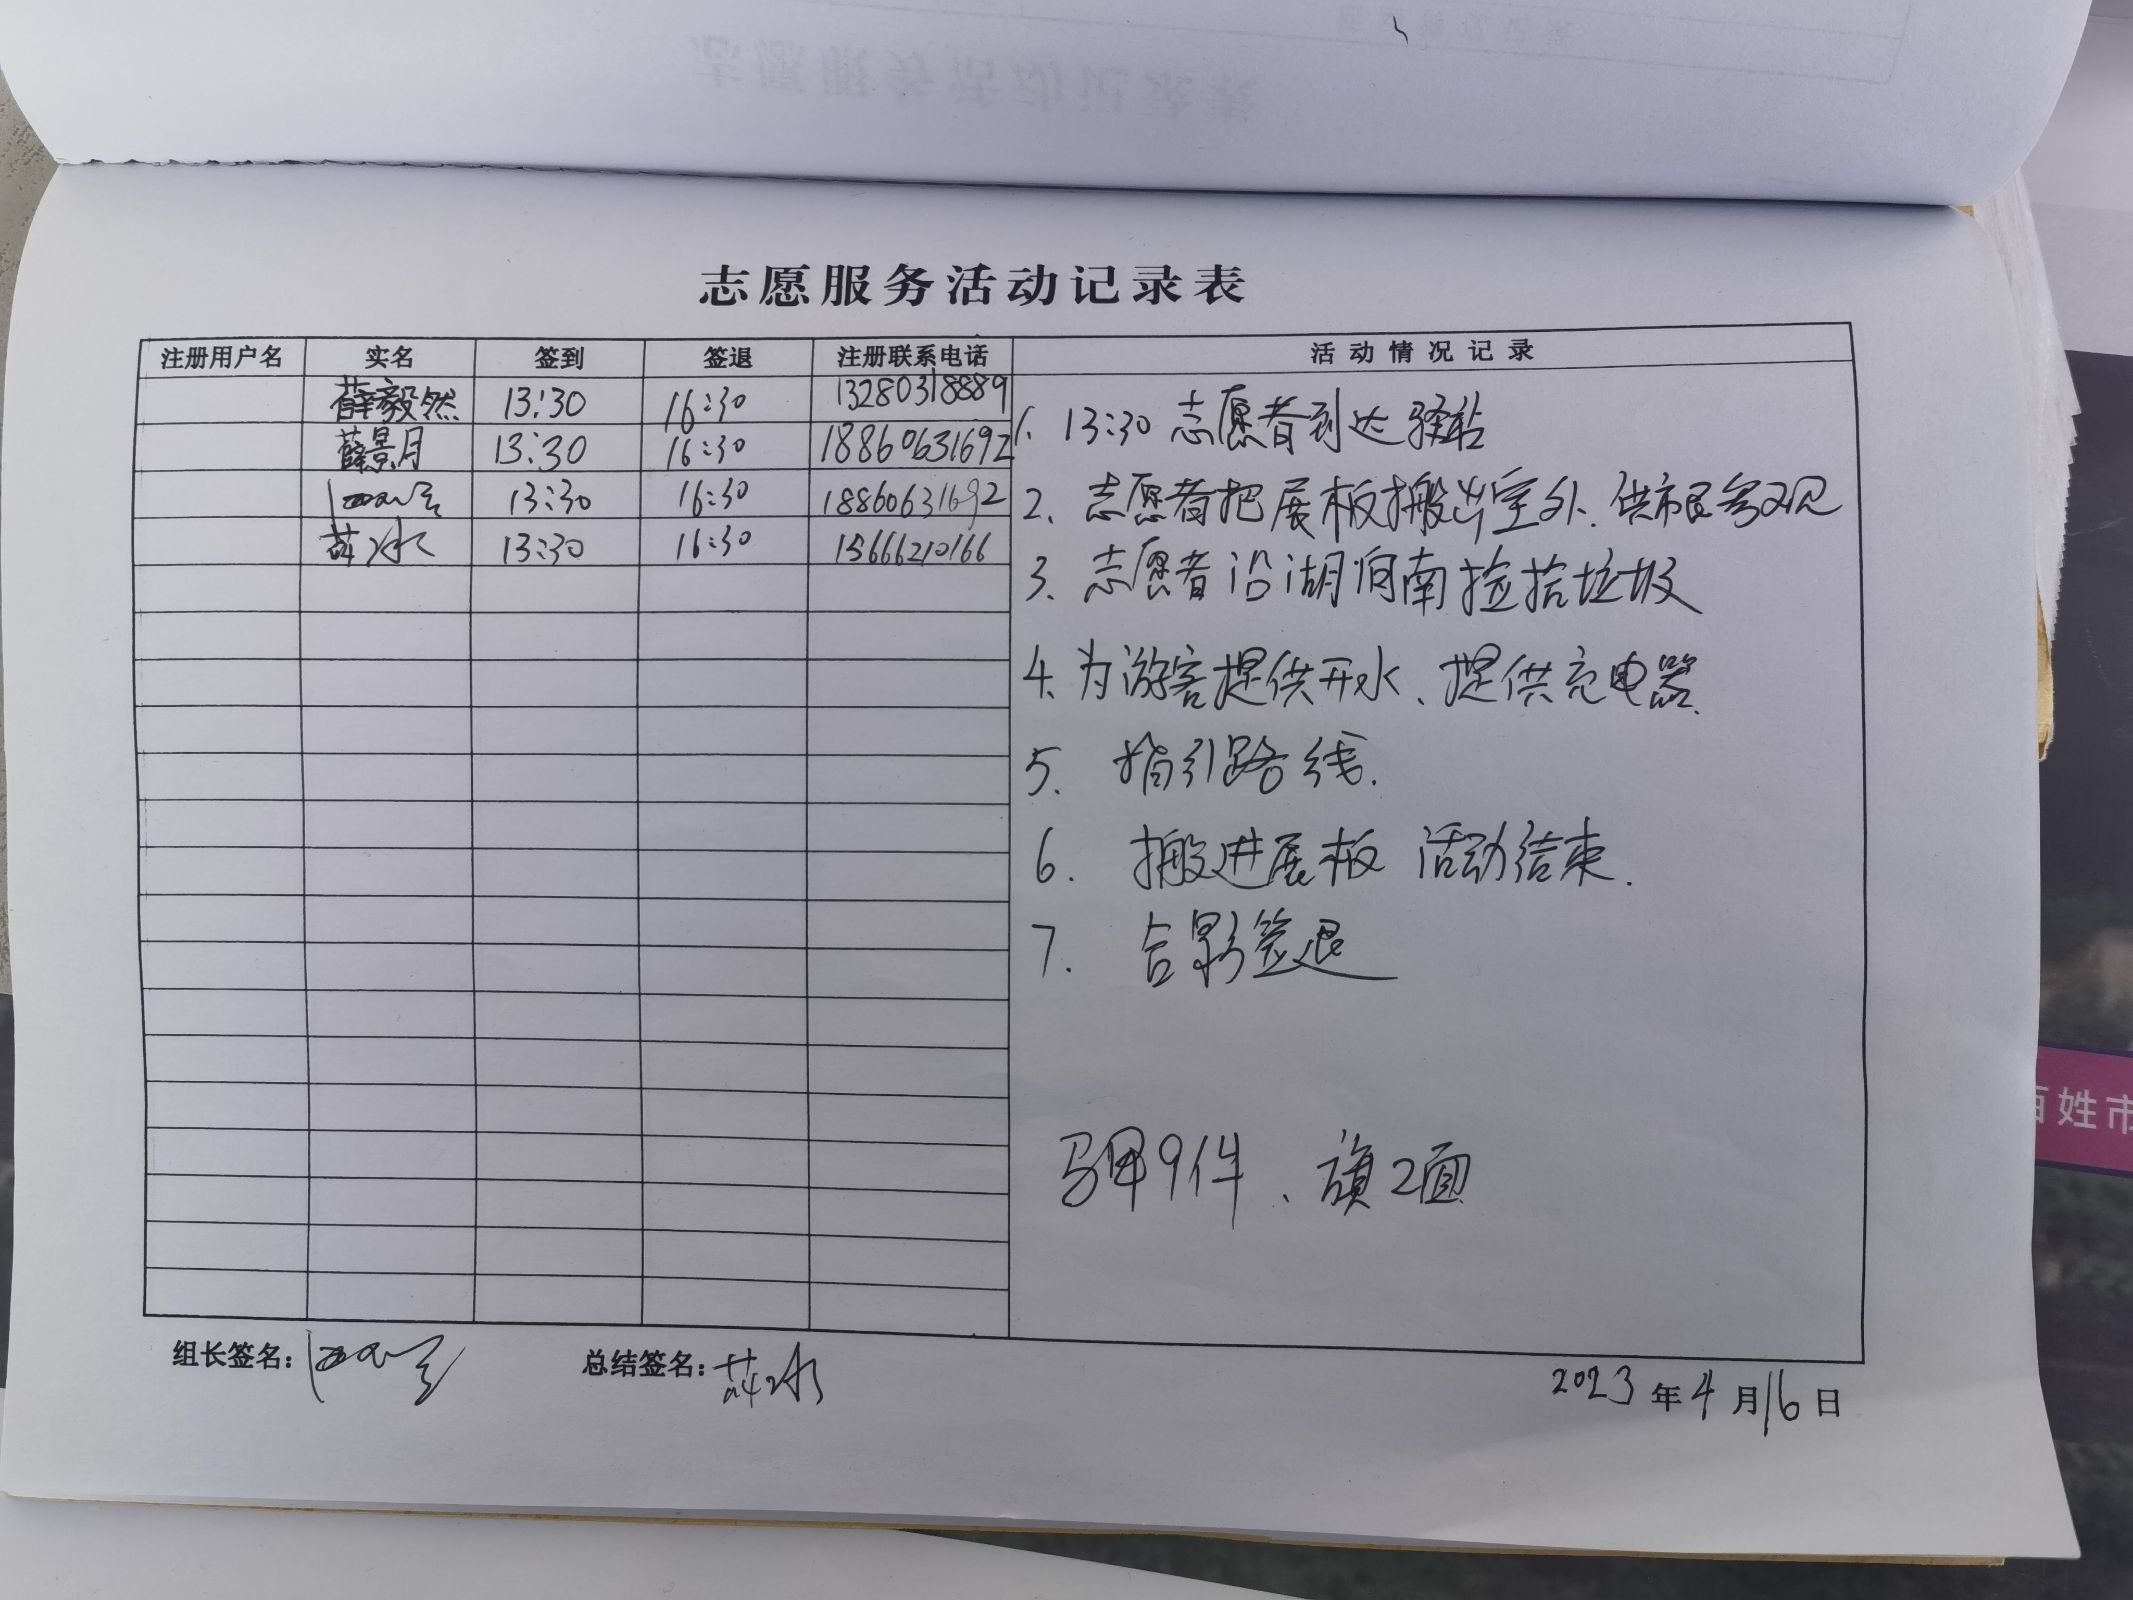 志愿服务活动记录表
注册用户名 实名 签到 签退 注册联系电话 活动情况记录
薛毅然 13:30 16:30 13280318889
薛景月 13:30 16:30 18860631692
13:30 16:30 18860631692
薛冰 13:30 16:30 15666210166
1. 13:30 志愿者到达驿站
2、志愿者把展板搬出室外、供市民参观
3、志愿者沿湖向南捡拾垃圾
4、为游客提供开水、提供充电器.
5. 指引路线.
6. 搬进展板 活动结束.
7. 合影签退
马甲9件、旗2面
组长签名: 总结签名: 薛冰
2023年4月16日
百姓市